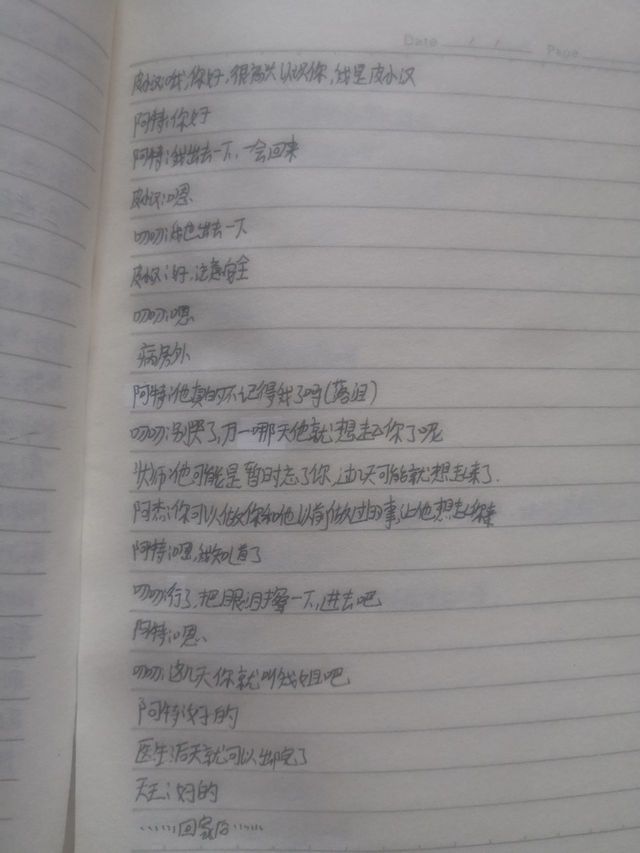 Date / / Page
皮小汉:哦,你好,很高兴认识你,我是皮小汉
阿特:你好
阿特:我出去一下,一会回来
皮小汉:嗯
叨叨:我也出去一下
皮小汉:好,注意安全
叨叨:嗯
病房外
阿特:他真的不记得我了吗(落泪)
叨叨:别哭了,万一哪天他就想起你了呢
状师:他可能是暂时忘了你,过几天可能就想起来了.
阿杰:你可以做你和他以前做过的事,让他想起你来
阿特:嗯,我知道了
叨叨:行了,把眼泪擦一下,进去吧
阿特:嗯
叨叨:这几天你就叫我姐吧
阿特:好的
医生:后天就可以出院了
天王:好的
……回家后……